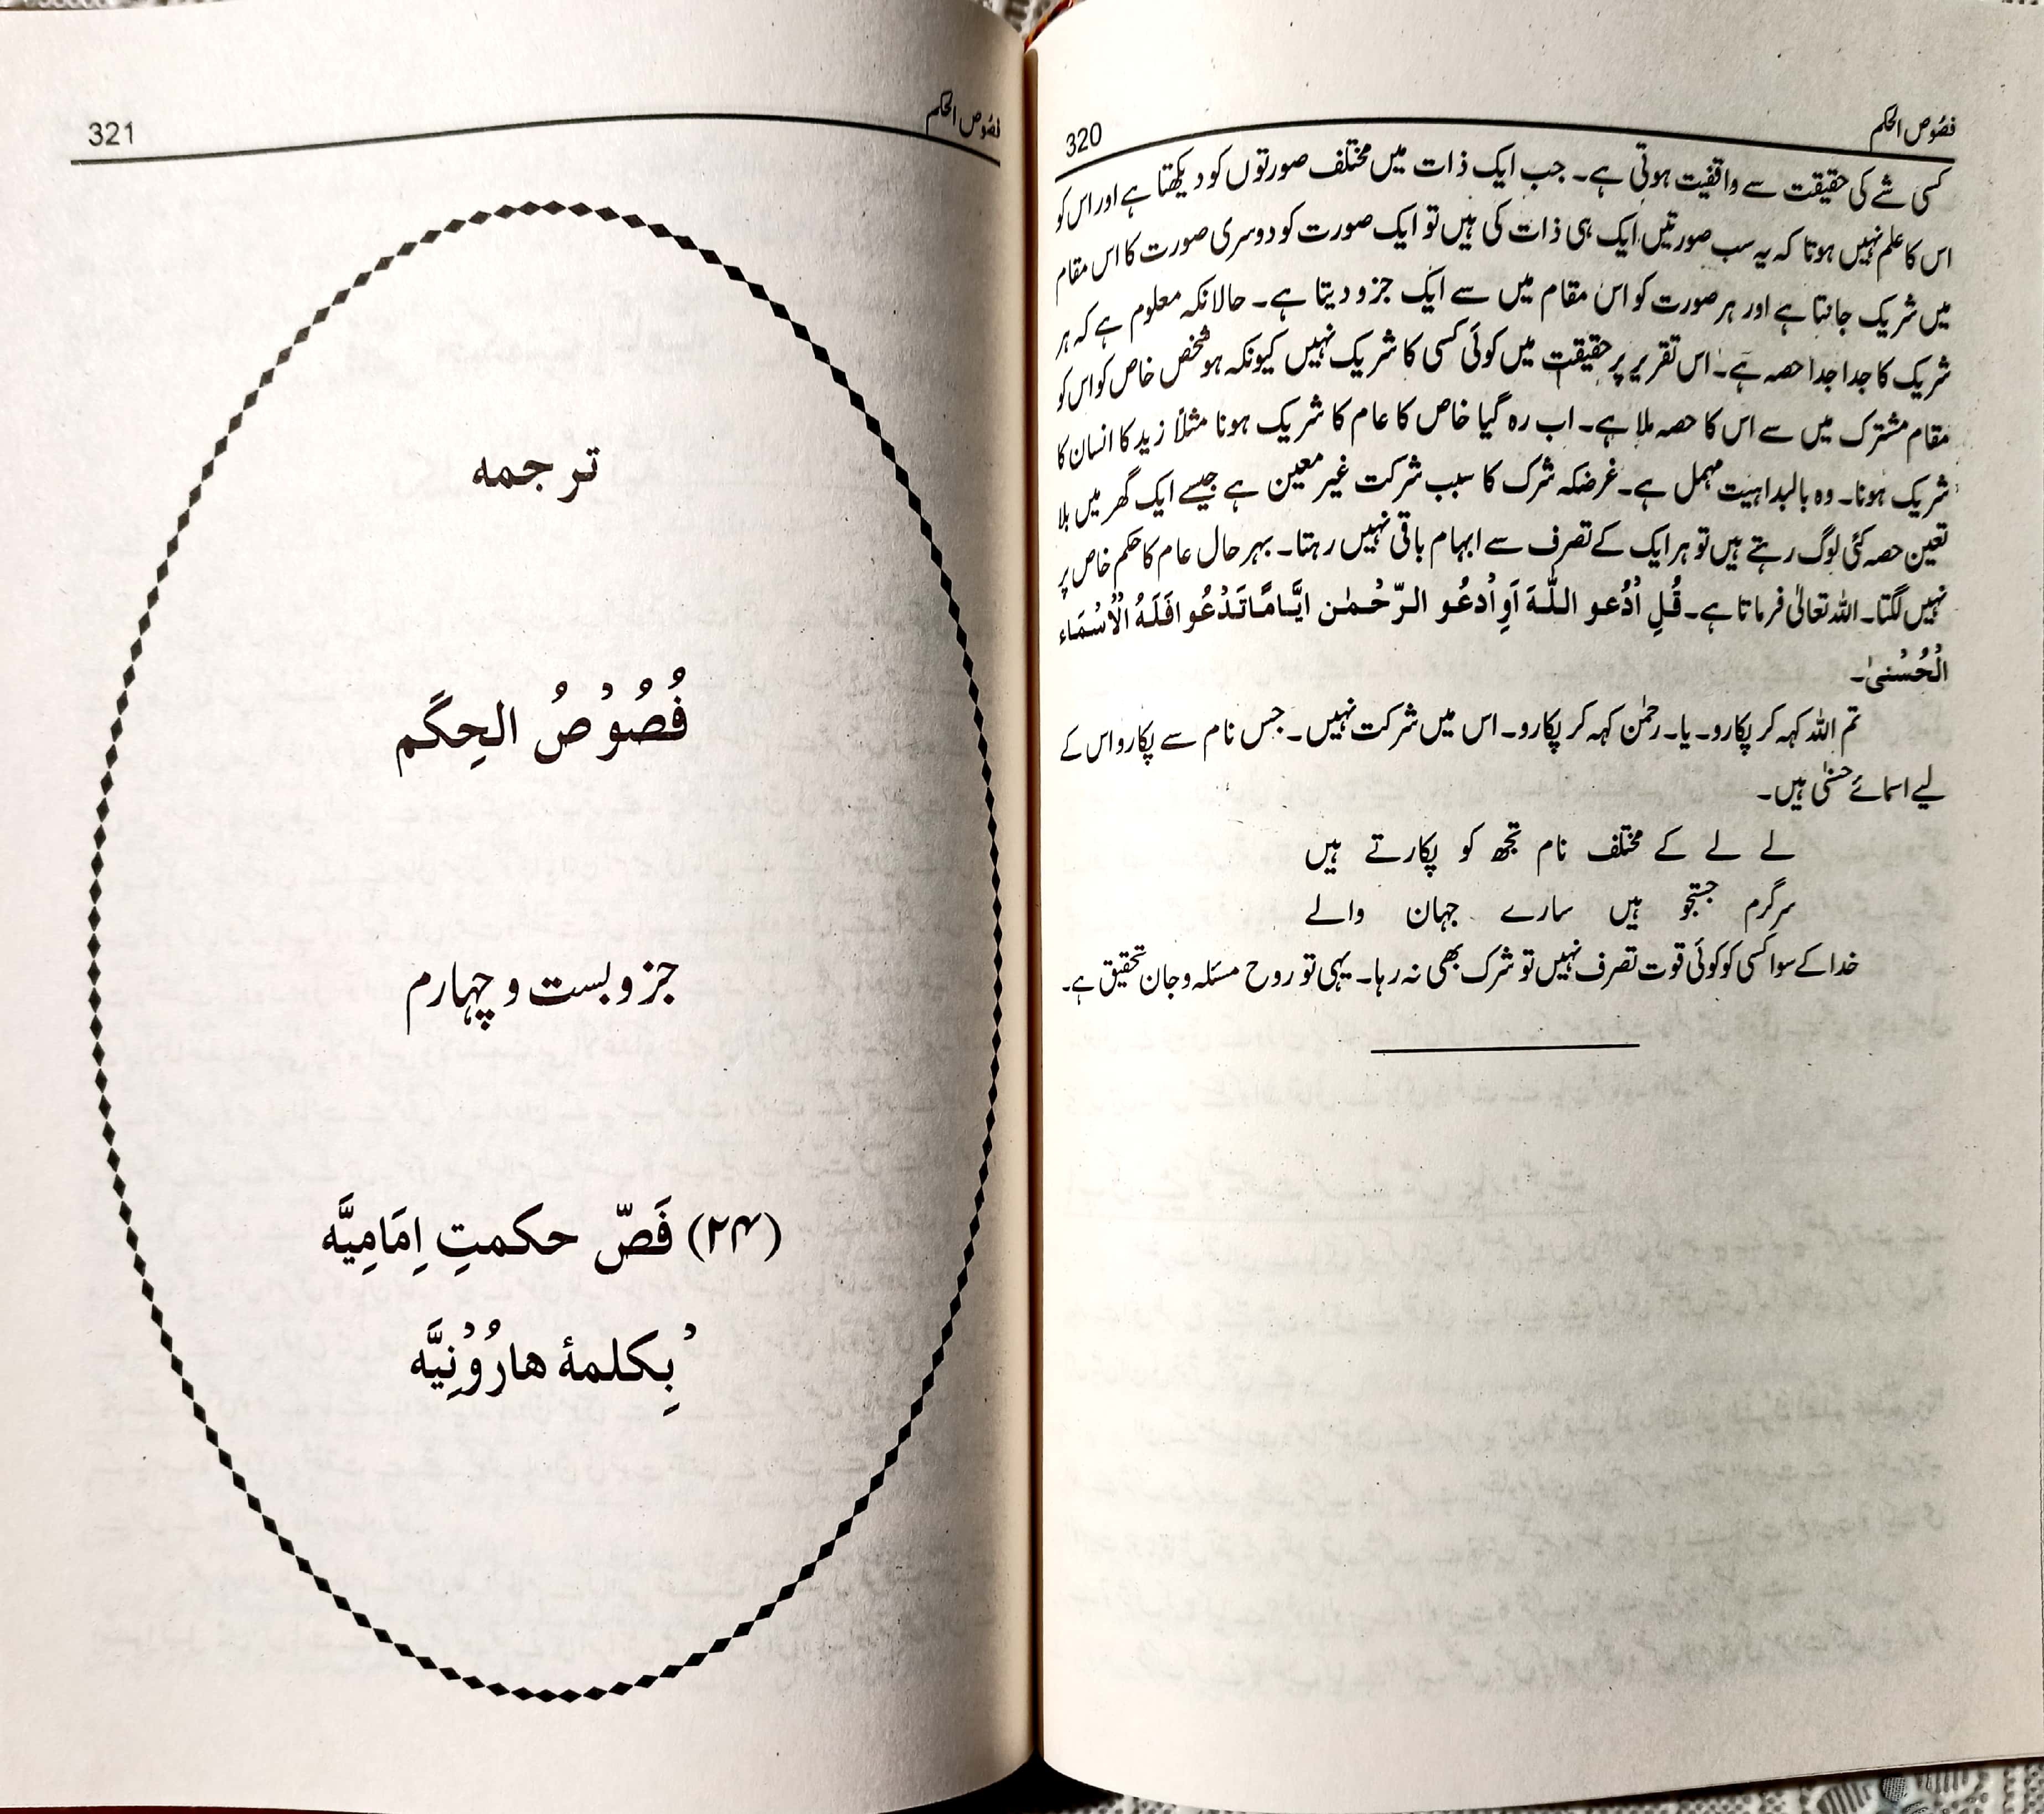 فصُوص الحکم
320
کسی شے کی حقیقت سے واقفیت ہوتی ہے۔ جب ایک ذات میں مختلف صورتوں کو دیکھتا ہے اور اس کو
اس کا علم نہیں ہوتا کہ یہ سب صورتیں ایک ہی ذات کی ہیں تو ایک صورت کو دوسری صورت کا اس مقام
میں شریک جانتا ہے اور ہر صورت کو اس مقام میں سے ایک جزو دیتا ہے۔ حالانکہ معلوم ہے کہ ہر
شریک کا جدا جدا حصہ ہے۔ اس تقریر پر حقیقت میں کوئی کسی کا شریک نہیں کیونکہ ہو شخص خاص کو اس کو
مقام مشترک میں سے اس کا حصہ ملا ہے۔ اب رہ گیا خاص کا عام کا شریک ہونا مثلاً زید کا انسان کا
شریک ہونا۔ وہ بالبداہیت مہمل ہے۔ غرضکہ شرک کا سبب شرکت غیر معین ہے جیسے ایک گھر میں بلا
تعین حصہ کئی لوگ رہتے ہیں تو ہر ایک کے تصرف سے ابہام باقی نہیں رہتا۔ بہر حال عام کا حکم خاص پر
نہیں لگتا۔ اللہ تعالیٰ فرماتا ہے۔ قُلِ اُدْعو اللّٰهَ اَوِ اُدعُو الرّحْمٰن ايَّامَّاتَدْعُو افَلَهُ الْاُسْمَاء
الْحُسْنیٰ۔
تم اللہ کہہ کر پکارو۔ یا۔ رحمٰن کہہ کر پکارو۔ اس میں شرکت نہیں۔ جس نام سے پکارو اس کے
لیے اسمائے حسنٰی ہیں۔
لے لے کے مختلف نام تجھ کو پکارتے ہیں
سرگرم جستجو ہیں سارے جہان والے
خدا کے سوا کسی کو کوئی قوت تصرف نہیں تو شرک بھی نہ رہا۔ یہی تو روح مسئلہ و جان تحقیق ہے۔
فصُوص الحکم
321
ترجمه
فُصُوْصُ الحِکَم
جزو بست و چہارم
(۲۴) فَصّ حکمتِ اِمَامِیَّه
بِکلمۂ هارُوْنِیَّه